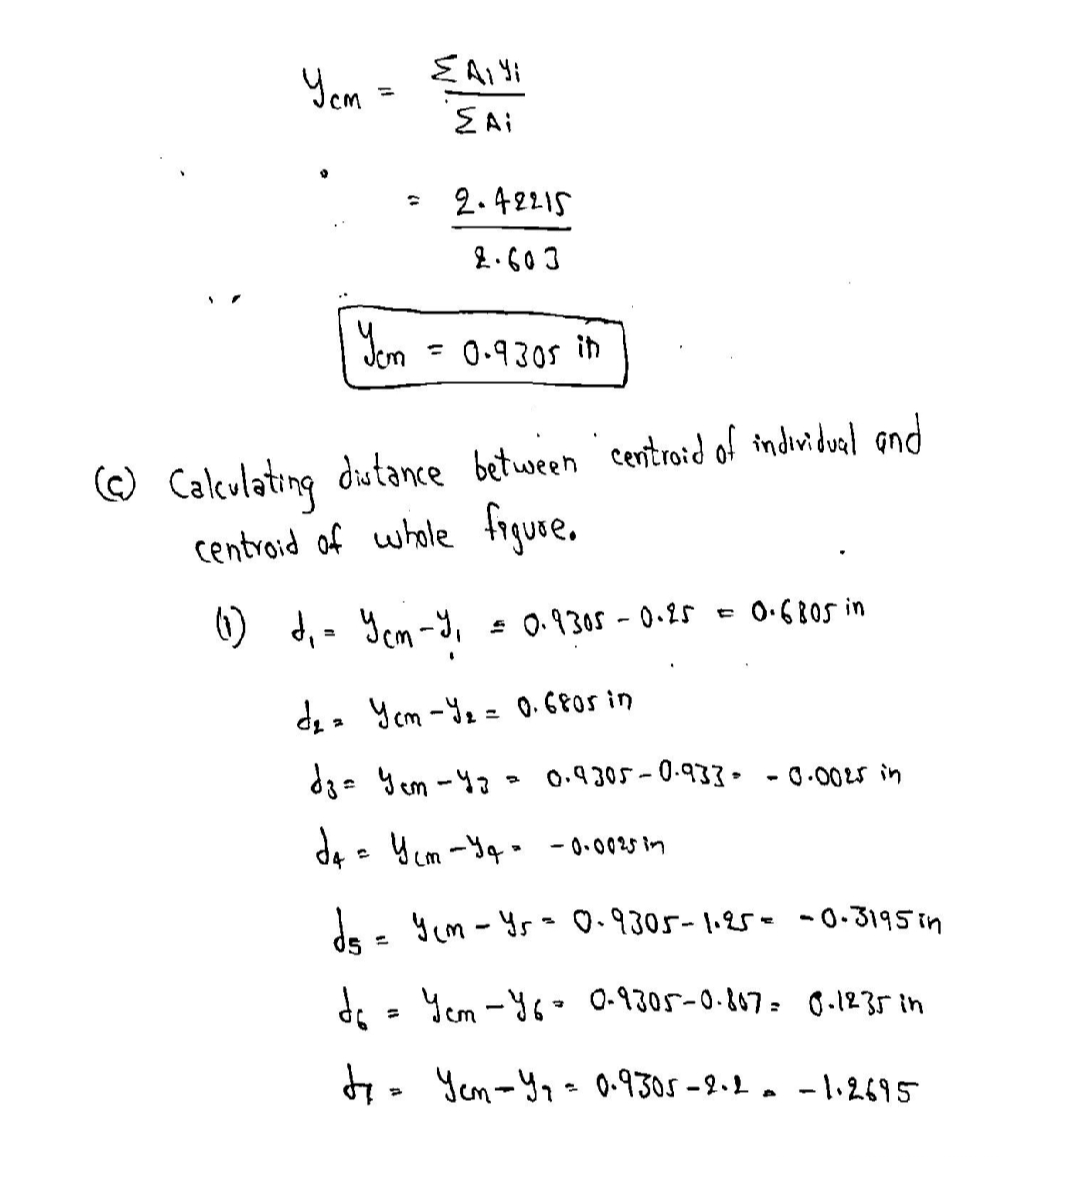 Ycm = ΣAiyi / ΣAi
= 2.42215 / 2.603
Ycm = 0.9305 in
(c) Calculating distance between centroid of individual and
centroid of whole figure.
(1) d1 = Ycm - Y1 = 0.9305 - 0.25 = 0.6805 in
d2 = Ycm - Y2 = 0.6805 in
d3 = Ycm - Y3 = 0.9305 - 0.933 = - 0.0025 in
d4 = Ycm - Y4 = - 0.0025 in
d5 = Ycm - Y5 = 0.9305 - 1.25 = - 0.3195 in
d6 = Ycm - Y6 = 0.9305 - 0.807 = 0.1235 in
d7 = Ycm - Y7 = 0.9305 - 2.2 = - 1.2695